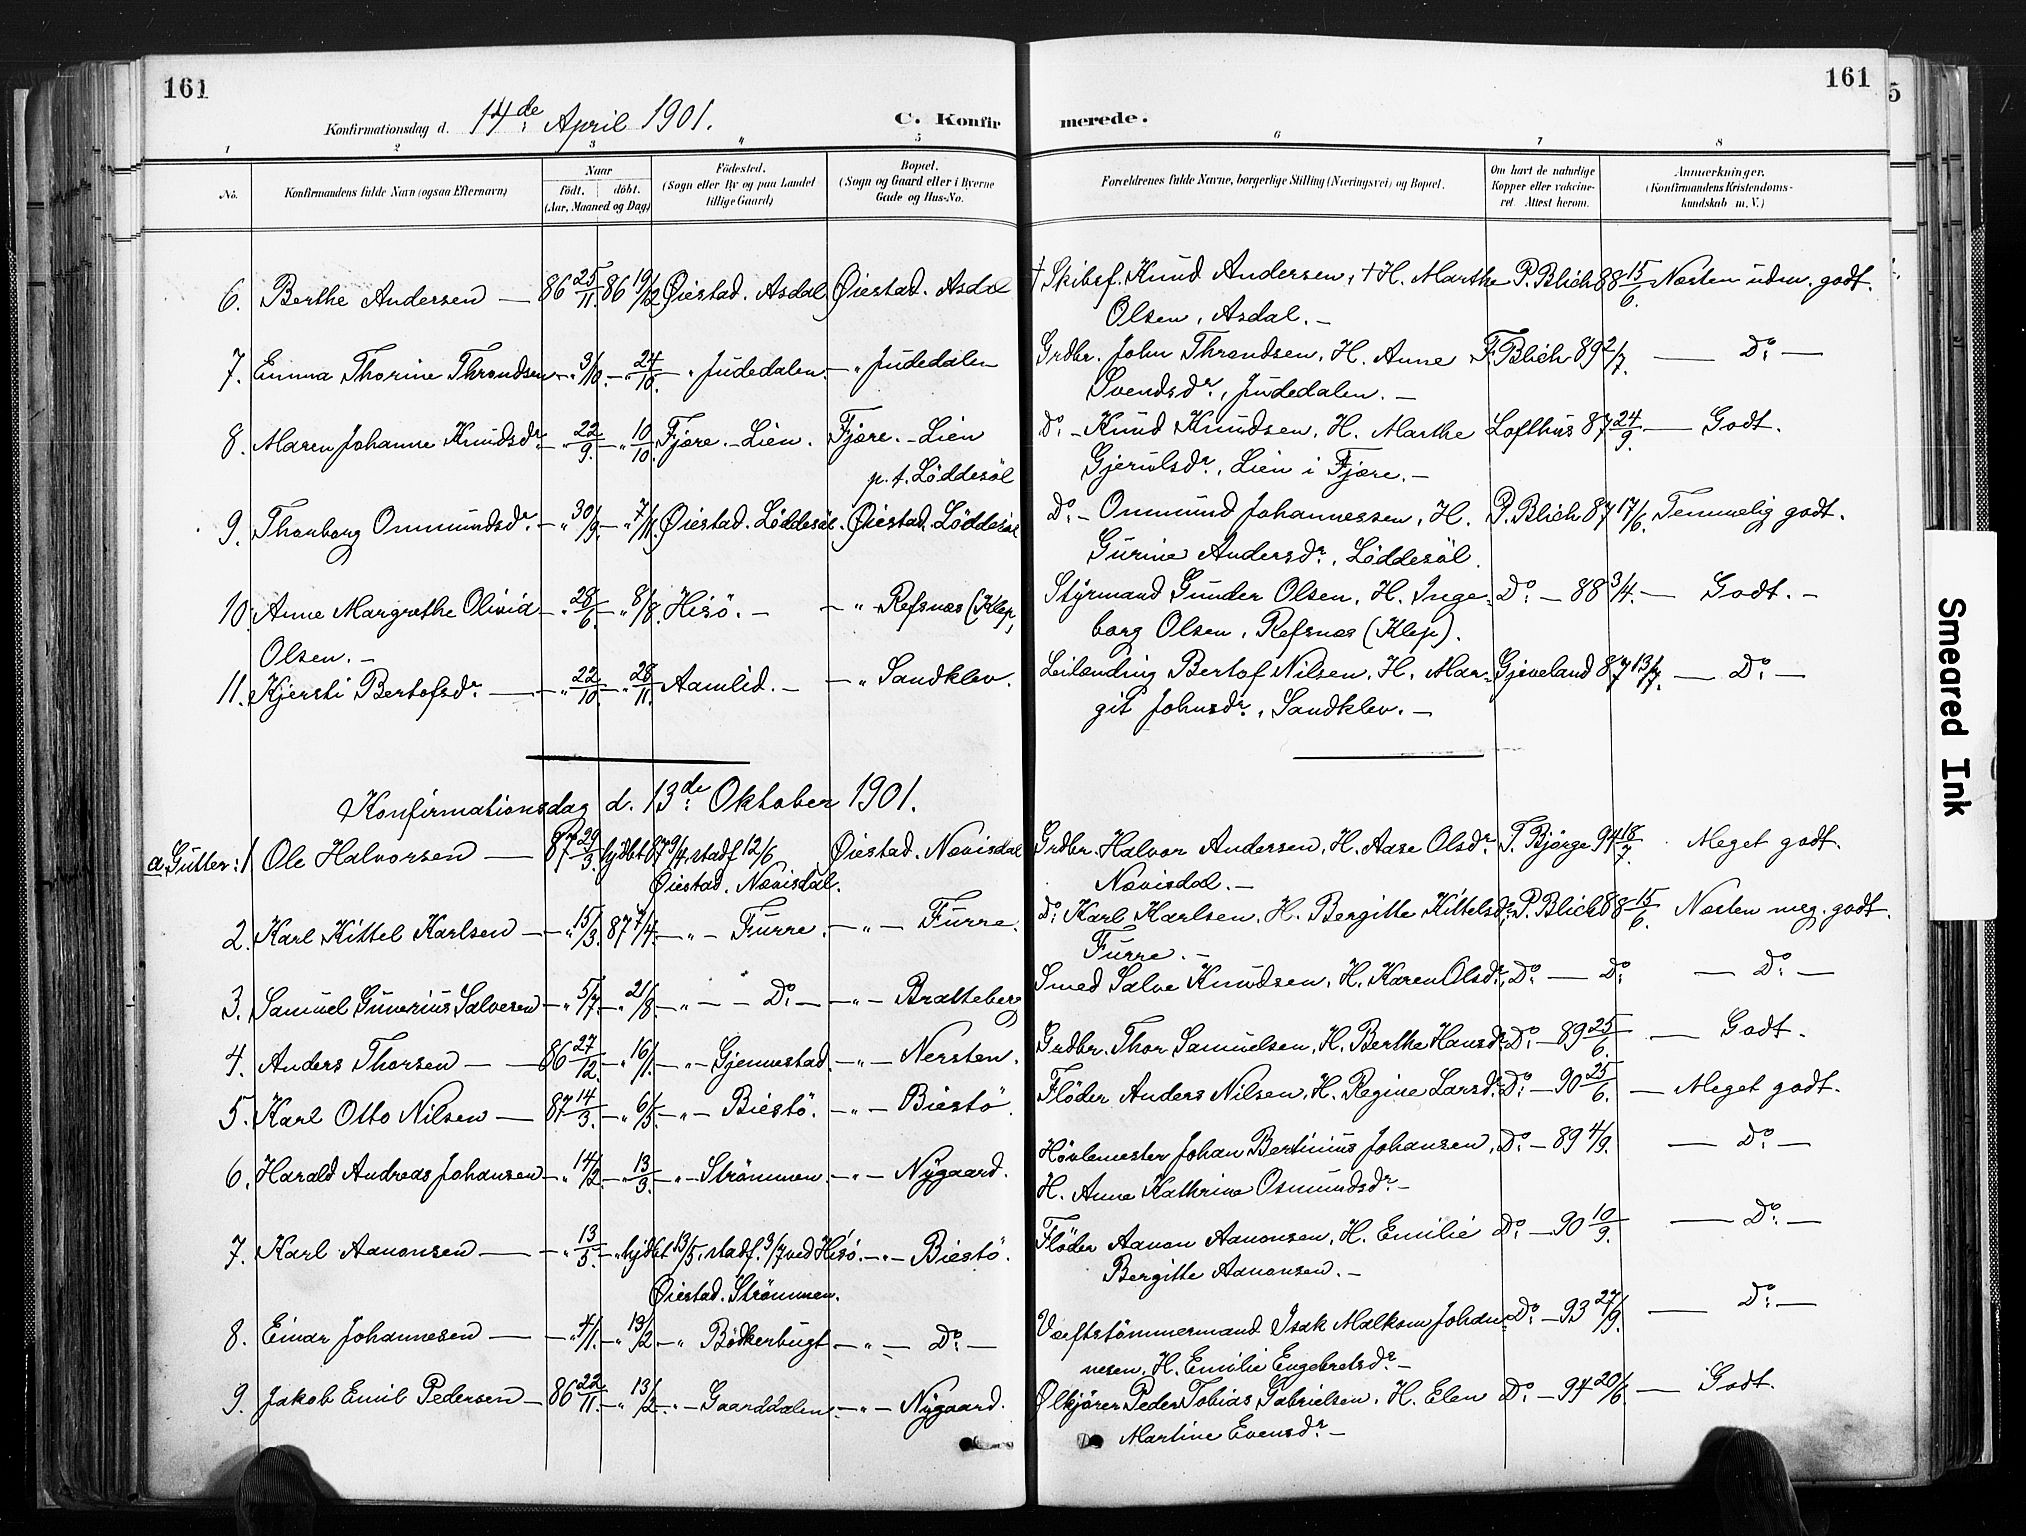 161
161
5
Konfirmationsdag d. 14de April 1901.
C. Konfirmerede.
1 2 3 4 5 6 7 8
No.
Konfirmandens fulde Navn (ogsaa Efternavn)
Naar
født. døbt.
(Aar, Maaned og Dag)
Fødested.
(Sogn eller By og paa Landet
tillige Gaard)
Bopæl.
(Sogn og Gaard eller i Byerne
Gade og Hus-No.
Forældrenes fulde Navne, borgerlige Stilling (Næringsvei) og Bopæl.
Om havt de naturlige
Kopper eller vakcine-
ret. Attest herom.
Anmærkninger.
(Konfirmandens Kristendoms-
kundskab m. V.)
6. Berthe Andersen — 86 25/11. 86 19/12 Øiestad. Asdal Øiestad. Asdal † Skibsf. Knud Andersen, † H. Marthe P. Blich 88 15/6. Næsten udm. godt.
Olsen, Asdal. —
7. Emma Thorine Throndsen — " 3/10. — " 24/10. — " Judedalen. — " Judedalen Grdbr. John Throndsen, H. Anne F. Blich 89 2/7. — Do: —
Svendsdr., Judedalen. —
8. Maren Johanne Knudsdr. — " 22/9. — " 10/10. Fjære. — Lien. Fjære. — Lien Do: — Knud Knudsen, H. Marthe Lofthus 87 24/9. — Godt.
p. t. Løddesøl Gjerulsdr., Lien i Fjære. —
9. Thonborg Ommundsdr. — " 30/9. — " 7/11. Øiestad. Løddesøl. Øiestad. Løddesøl Do: — Ommund Johannessen, H. P. Blich 87 17/6. Temmelig godt.
Gurine Andersdr., Løddesøl.
10. Anne Margrethe Olivia — " 28/6. — " 8/8. Hisö. — — " Refsnæs (Klep, Styrmand Gunder Olsen, H. Inge- Do: — 88 3/4. — Godt. —
Olsen. — borg Olsen, Refsnæs (Klep).
11. Kjersti Bertofsdr. — " 22/10. — " 28/11. Aamlid. — — " Sandklev. Leilænding Bertof Nilsen, H. Mar- Gjeveland 87 13/7. — Do: —
git Johnsdr., Sandklev. —
Konfirmationsdag d. 13de: Oktober 1901.
a. Gutter: 1 Ole Halvorsen — 87 29/3. hjdbt 87 9/4, stadf 12/6 Øiestad. Nævisdal Grdbr. Halvor Andersen, H. Aase Olsdr. T. Bjørge 94 18/7. Meget godt.
Øiestad. Nævisdal. Nævisdal. —
2. Karl Kittel Karlsen — " 15/3. 87 7/4. — " — Furre. — " — Furre. Do: Karl Karlsen, H. Bergitte Kittelsdr. P. Blich 88 15/6. Næsten meg. godt.
Furre. —
3. Samuel Gunerius Salvesen — " 5/7. — " 21/8 — " — — Do: — — " — Bratteberg Smed Salve Knudsen, H. Karen Olsdr., Do: — Do: — Do: —
4. Anders Thorsen — — 86 27/12. — " 16/1. — " — Gjennestad. — " — Nersten. Grdbr. Thor Samuelsen, H. Berthe Hansdr. Do: — 89 25/6. — Godt.
5. Karl Otto Nilsen — 87 14/3. — " 6/5. — " — Biestö. — " — Biestö. Fløder Anders Nilsen, H. Regine Larsdr. Do: — 90 25/6. — Meget godt.
6. Harald Andreas Johansen — " 14/2. — " 13/3. — " — Strömmen. — " — Nygaard. Høvlemester Johan Bertinius Johansen, Do: — 89 4/9. — Do: —
H. Anne Kathrine Osmundsdr. —
7. Karl Aanonsen — — " 13/5. — " hjdbt 13/5, stadf. 3/7 ved Hisö. — " — Biestö. Fløder Aanon Aanonsen, H. Emilie Do: — 90 10/9. — Do: —
Øiestad. Strömmen. Bergitte Aanonsen. —
8. Einar Johannesen — — " 4/1. — " 13/2 — " Bödkerbugt — " — Do: — Værftstömmermand Isak Malkom Johan- Do: — 93 27/9. — Do: —
nesen, H. Emilie Engebretsdr. —
9. Jakob Emil Pedersen — 86 22/11. — " 13/2. — " — Gaarddalen. — " — Nygaard. Ølkjører Peder Tobias Gabrielsen, H. Elen Do: — 94 20/6. — Godt.
Martine Evensdr. —
Smeared Ink